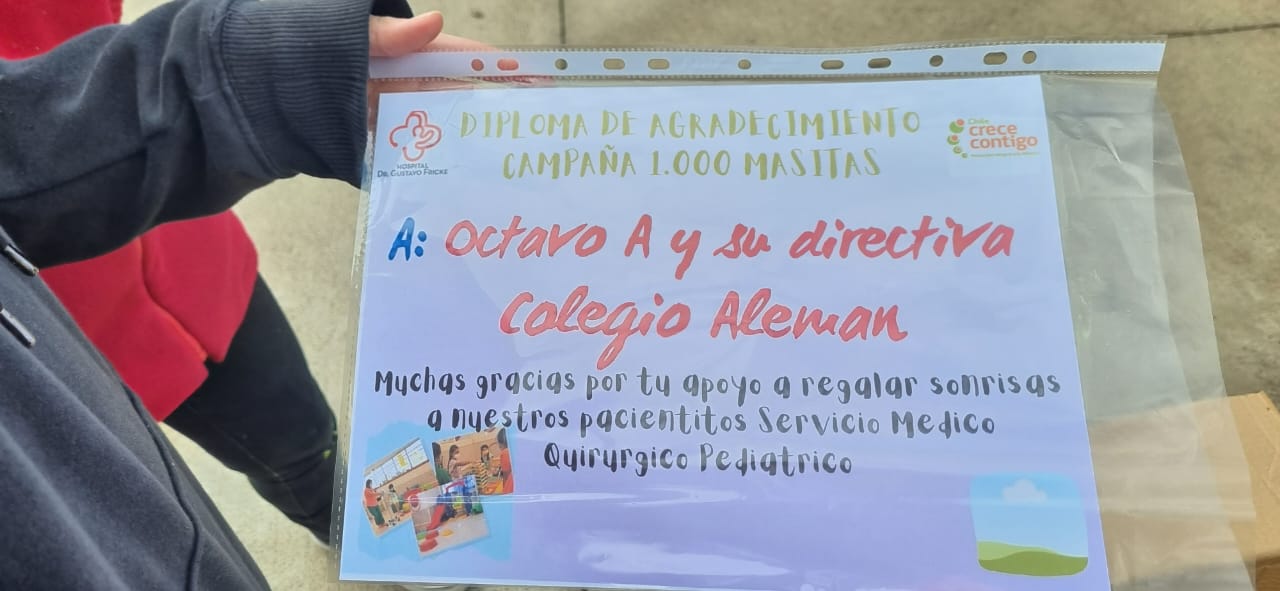 DIPLOMA DE AGRADECIMIENTO
CAMPAÑA 1.000 MASITAS
HOSPITAL
DR. GUSTAVO FRICKE
Chile
crece
contigo
A: Octavo A y su directiva
Colegio Aleman
Muchas gracias por tu apoyo a regalar sonrisas
a nuestros pacientitos Servicio Medico
Quirurgico Pediatrico